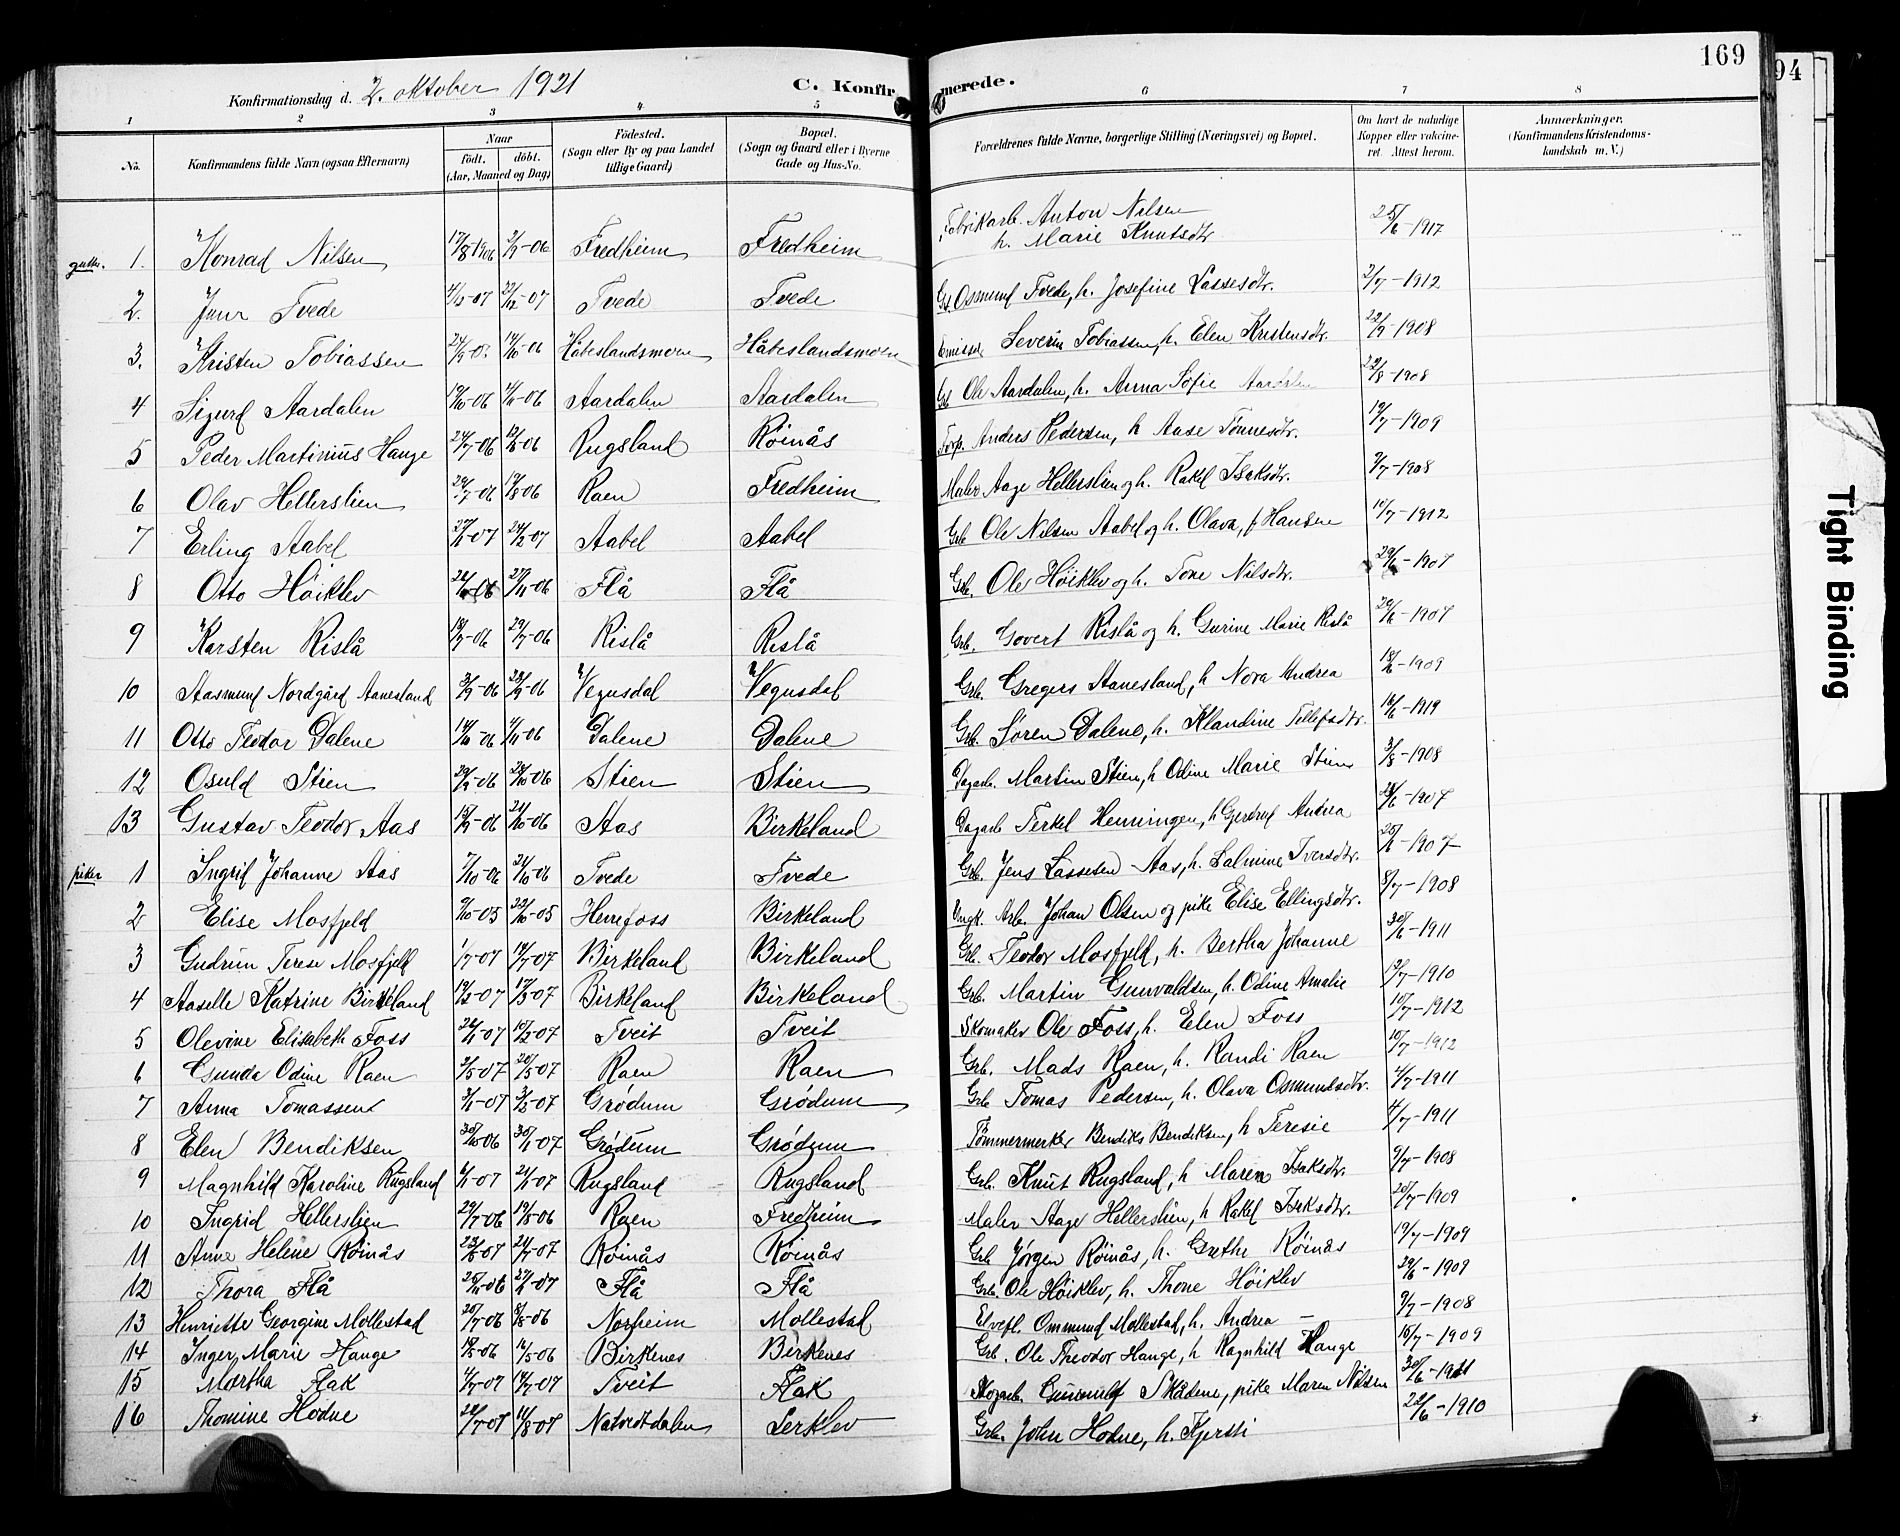 169
94
Konfirmationsdag d. 2. oktober 1921
C. Konfirmerede.
1 2 3 4 5 6 7 8
No. Konfirmandens fulde Navn (ogsaa Efternavn) Naar født. døbt. (Aar, Maaned og Dag) Fødested. (Sogn eller By og paa Landet tillige Gaard) Bopæl. (Sogn og Gaard eller i Byerne Gade og Hus-No. Forældrenes fulde Navne, borgerlige Stilling (Næringsvei) og Bopæl. Om havt de naturlige Kopper eller vaccineret. Attest herom. Anmærkninger. (Konfirmandens Kristendomskundskab m. V.)
gutter. 1. Konrad Nilsen 17/8-1906 -06 Fredheim Fredheim Fabrikarb. Anton Nilsen h. Marie Knutsdtr 25/6-1917
2. Tvede -07 22/12-07 Tvede Tvede Gb. Osmund Tvede, h. Josefine Lassesdtr. 2/7-1912
3. Kristen Tobiassen 14/10-06 Håbeslandsmoen Håbeslandsmoen Severin Tobiassen, h. Elen Kristensdtr. 22/9-1908
4 Sigurd Aardalen 19/10-06 -06 Aardalen Aardalen Gb Ole Aardalen, h. Anna Sofie Aardalen 29/8-1908
5 Peder Martinius Hauge 24/7-06 12/8-06 Rugsland Röinås Forp. Anders Pedersen, h Aase Tønnesdtr. 19/7-1909
6 Olav Hellerslien 29/7-06 19/8-06 Raen Fredheim Maler Aage Hellerslien og h. Rakel Isaksdtr. 9/7-1908
7 Erling Aabel -07 24/2-07 Aabel Aabel Gb. Ole Nilsen Aabel og h. Olava, f. Hansen 10/7-1912
8 Otto Höiklev -06 27/11-06 Flå Flå Grb. Ole Höiklev og h. Tone Nilsdtr. 29/6-1907
9 Karsten Rislå 18/7-06 29/7-06 Rislå Rislå Grb. Govert Rislå og h. Gurine Marie Rislå 29/6-1907
10 Aasmund Nordgård Aanesland 3/9-06 23/9-06 Vegusdal Vegusdal Grb. Gregers Aanesland, h Nora Andrea 18/6-1909
11 Otto Teodor Dalene 14/10-06 4/11-06 Dalene Dalene Grb. Søren Dalene, h. Klandine Tellefsdtr. 16/6-1919
12 Osuld Stien 29/9-06 28/10-06 Stien Stien Dagarb. Martin Stien, h Odine Marie Stien 3/8-1908
13 Gustav Teodor Aas -06 21/10-06 Aas Birkeland Dagarb Terkel Henningen, h Gjertrud Andrea 28/6-1907
piker 1 Ingrid Johanne Aas 7/10-06 21/10-06 Tvede Tvede Grb. Jens Lassesen Aas, h. Salmine Iversdtr. 25/6-1907
2 Elise Mosfjeld 9/10-05 22/10-05 Herefoss Birkeland Ungk. Arb. Johan Olsen og pike Elise Ellingsdtr. 8/7-1908
3 Gudrun Terese Mosfjeld 1/7-07 14/7-07 Birkeland Birkeland Grb. Teodor Mosfjeld, h. Bertha Johanne 30/6-1911
4 Aaselle Katrine Birkeland 19/2-07 17/3-07 Birkeland Birkeland Grb. Martin Gunvaldsen, h. Odine Amalie 9/7-1910
5 Olevine Elisabeth Foss 26/1-07 10/2-07 Tveit Tveit Skomaker Ole Foss, h. Elen Foss 10/7-1912
6 Gunda Odine Raen 3/5-07 20/5-07 Raen Raen Grb. Mads Raen, h. Randi Raen 10/7-1912
7 Anna Tomassen -07 3/3-07 Grødum Grødum Grb Tomas Pedersen, h. Olava Osmundsdtr. 4/7-1911
8 Elen Bendiksen 30/10-06 30/1-07 Grødum Grødum Tömmermerker Bendiks Bendiksen, h Teresie 4/7-1911
9 Magnhild Karoline Rugsland -07 21/1-07 Rugsland Rugsland Grb. Knut Rugsland, h Maren Isaksdtr. 9/7-1908
10 Ingrid Hellerslien 29/7-06 19/8-06 Raen Fredheim Maler Aage Hellerslien, h Rakel Isaksdtr. 20/7-1909
11 Anne Helene Röinås -07 21/7-07 Röinås Röinås Grb Jørgen Röinås, h. Grethe Röinås 19/7-1909
12 Thora Flå -06 -07 Flå Flå Grb. Ole Höiklev, h. Thone Höiklev 29/6-1909
13 Henriette Georgine Mollestad 20/7-06 8/8-06 Norheim Mollestad Elvefl. Ommund Mollestad, h. Andrea — 9/7-1908
14 Inger Marie Hauge -06 16/5-06 Birkenes Birkenes Grb. Ole Theodor Hauge, h Ragnhild Hauge 15/7-1909
15 Martha Flak 4/7-07 14/7-07 Tveit Flak Skogarb. Gunnulf Skådene, pike Maren Nilsen 30/6-1911
16 Thomine Hodne 22/7-07 11/8-07 Natvedtdalen Lerklev Grb. John Hodne, h. Kjersti 22/6-1910
Tight Binding